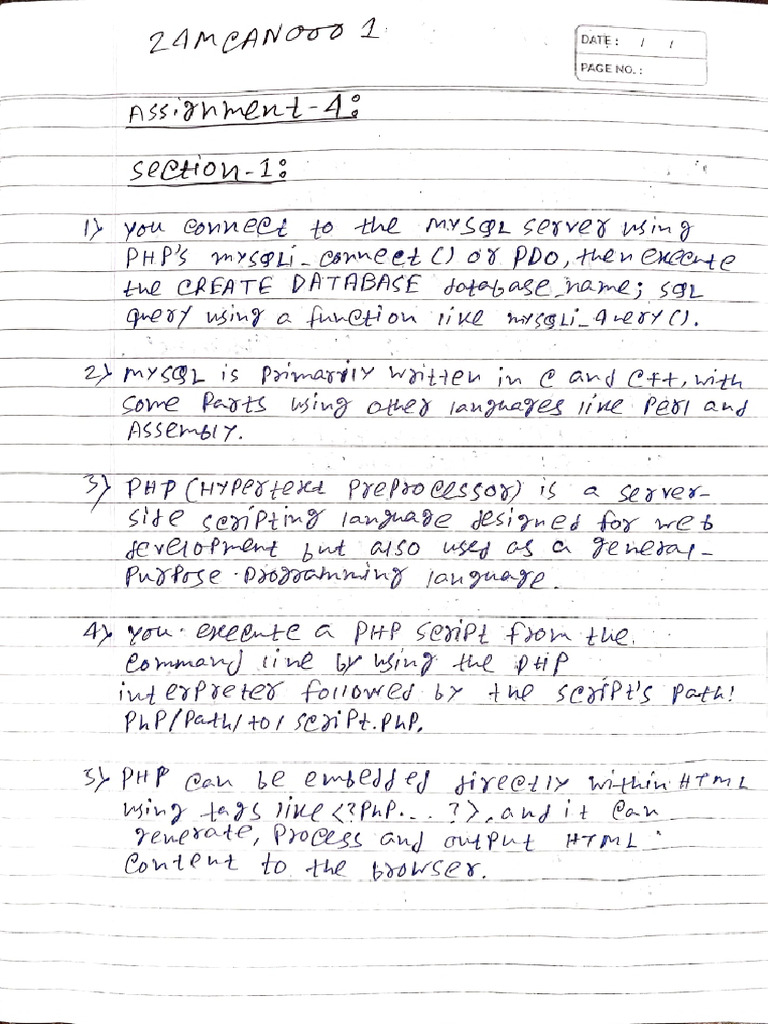 24MCAN0001
DATE: / /
PAGE NO.:
Assignment-4:
Section-1:
1) You connect to the MySQL server using
PHP's mysqli_connect() or PDO, then execute
the CREATE DATABASE database_name; SQL
query using a function like mysqli_query().
2) MySQL is primarily written in C and C++, with
some parts using other languages like Perl and
Assembly.
3) PHP (Hypertext Preprocessor) is a server-
side scripting language designed for web
development but also used as a general-
purpose programming language.
4) You execute a PHP script from the
command line by using the PHP
interpreter followed by the script's path:
PhP/Path/to/script.PhP.
5) PHP can be embedded directly within HTML
using tags like <?PhP...?>, and it can
generate, process and output HTML
content to the browser.